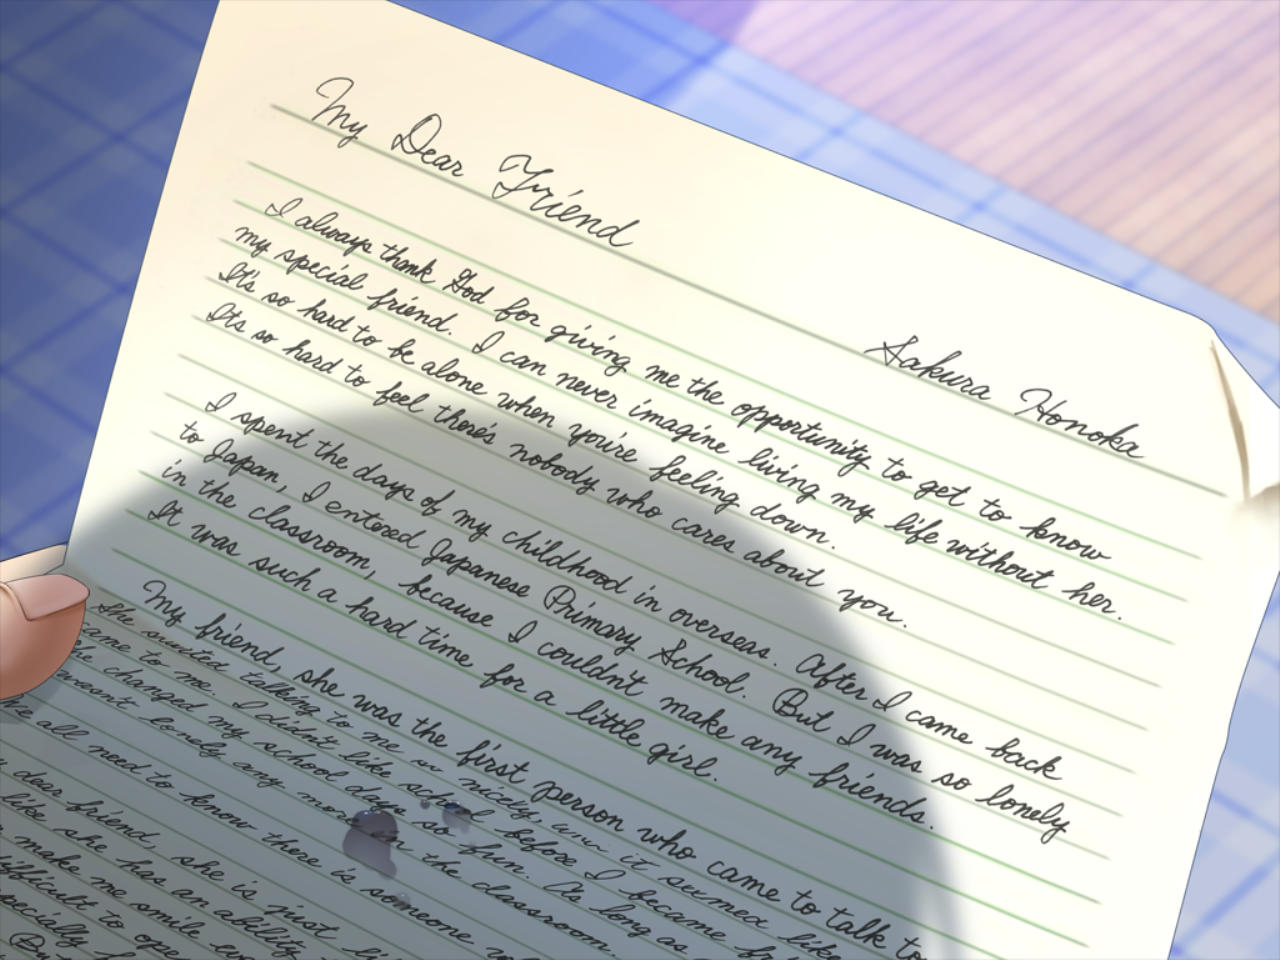 My Dear Friend
Sakura Honoka
I always thank God for giving me the opportunity to get to know
my special friend. I can never imagine living my life without her.
It's so hard to be alone when you're feeling down.
Its so hard to feel there's nobody who cares about you.
I spent the days of my childhood in overseas. After I came back
to Japan, I entered Japanese Primary School. But I was so lonely
in the classroom, because I couldn't make any friends.
It was such a hard time for a little girl.
My friend, she was the first person who came to talk to
She started talking to me so nicely, and it seemed like
came to me. I didn't like school before I became
he changed my school days so fun. As long as
wasnt lonely any more in the classroom.
We all need to know there is someone
dear friend, she is just
like she has an ability
make me smile
difficult to